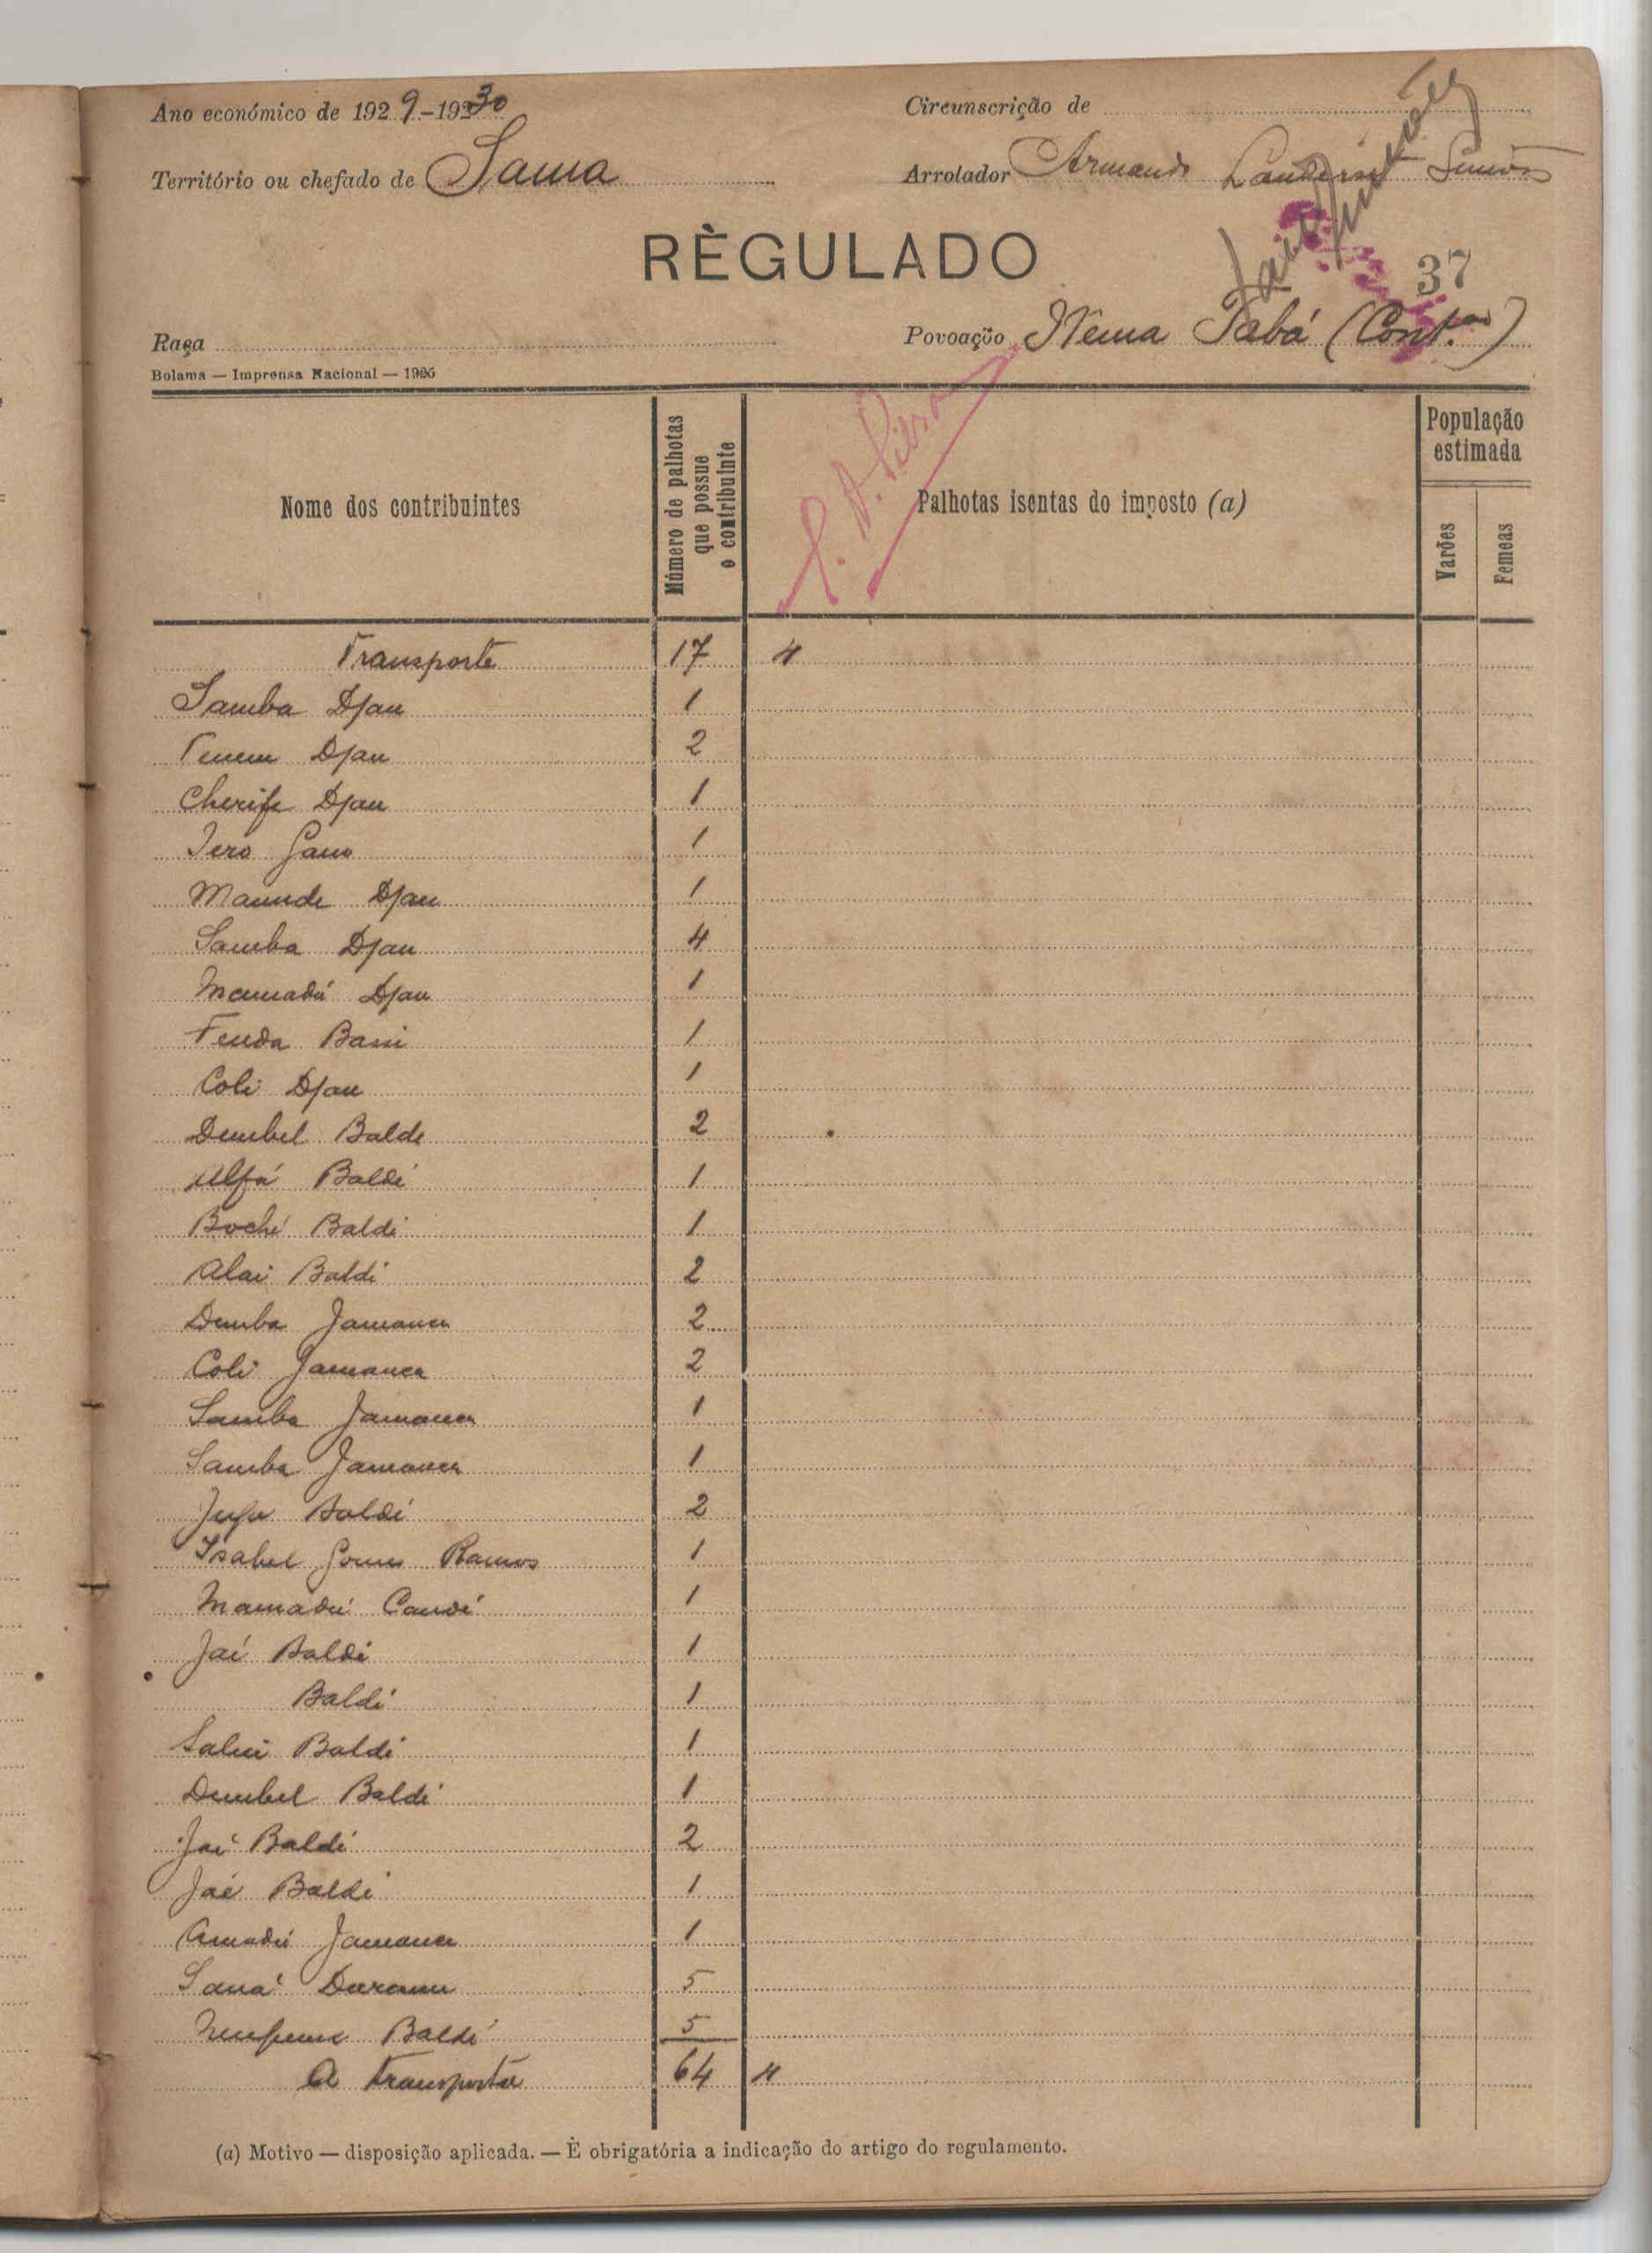 Ano económico de 1929-1930
Circunscrição de
Território ou chefado de Sama
Arrolador Armando Simões
RÈGULADO
37
Raça
Povoação Nema Tabá (Cont.ão)
Bolama — Imprensa Nacional — 1925
Nome dos contribuintes
Número de palhotas que possue o contribuinte
Palhotas isentas do imposto (a)
População estimada
Varões
Femeas
Transporte 17 4
Samba Djau 1
Tenem Djau 2
Cherife Djau 1
Iero Gano 1
Maunde Djau 1
Samba Djau 4
Mamadú Djau 1
Fenda Bari 1
Coli Djau 1
Dembel Balde 2
Alfá Baldé 1
Boché Baldé 1
Alai Baldé 2
Demba Jamanca 2
Coli Jamanca 2
Samba Jamanca 1
Samba Jamanca 1
Jufo Baldé 2
Isabel Gomes Ramos 1
Mamadú Candé 1
Jaé Baldé 1
Baldé 1
Salui Baldé 1
Dembel Baldé 1
Jaé Baldé 2
Jaé Baldé 1
Amadú Jamanca 1
Saná 5
Baldé 5
A transportar 64 4
(a) Motivo — disposição aplicada. — È obrigatória a indicação do artigo do regulamento.